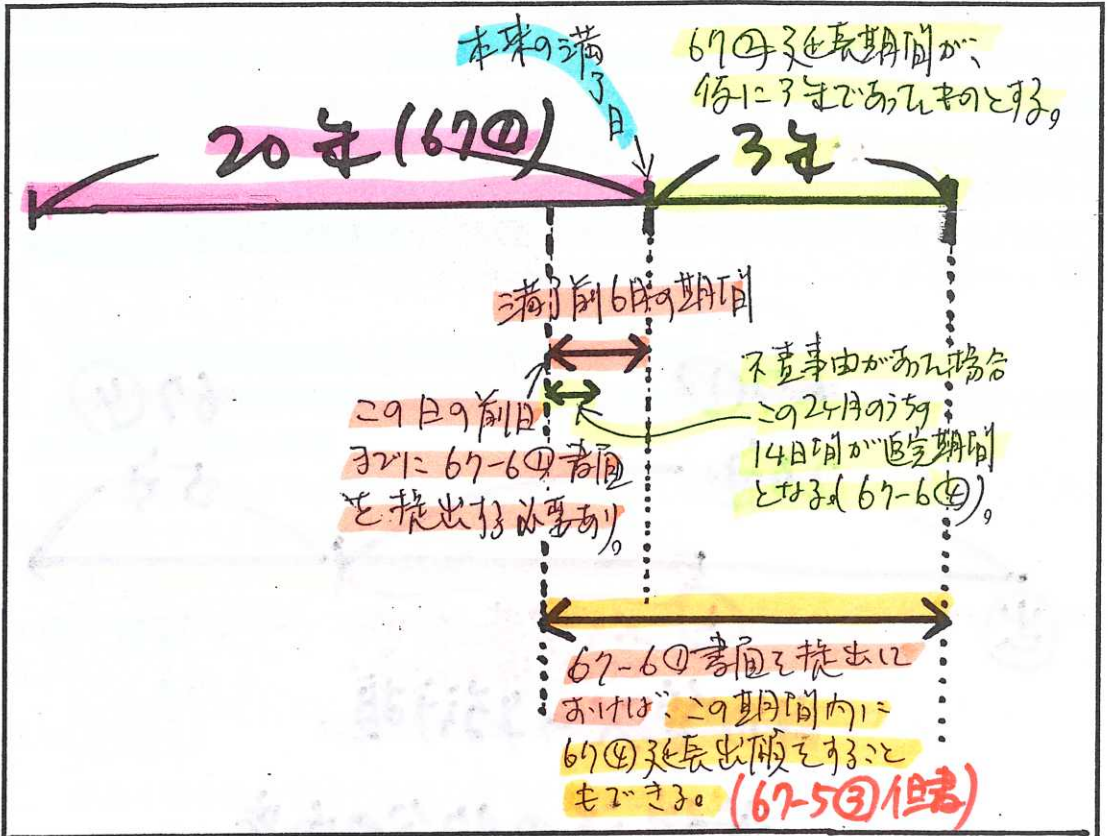 本来の満
了
日
67②延長期間が、
仮に3年であったものとする。
20年(67①)
3年
満了前6月の期間
この日の前日
までに67-6①書面
を提出する必要あり。
不責事由があった場合
この2ヶ月のうちの
14日間が追完期間
となる(67-6④)。
67-6①書面を提出して
おけば、この期間内に
67④延長出願をすること
もできる。(67-5③但書)